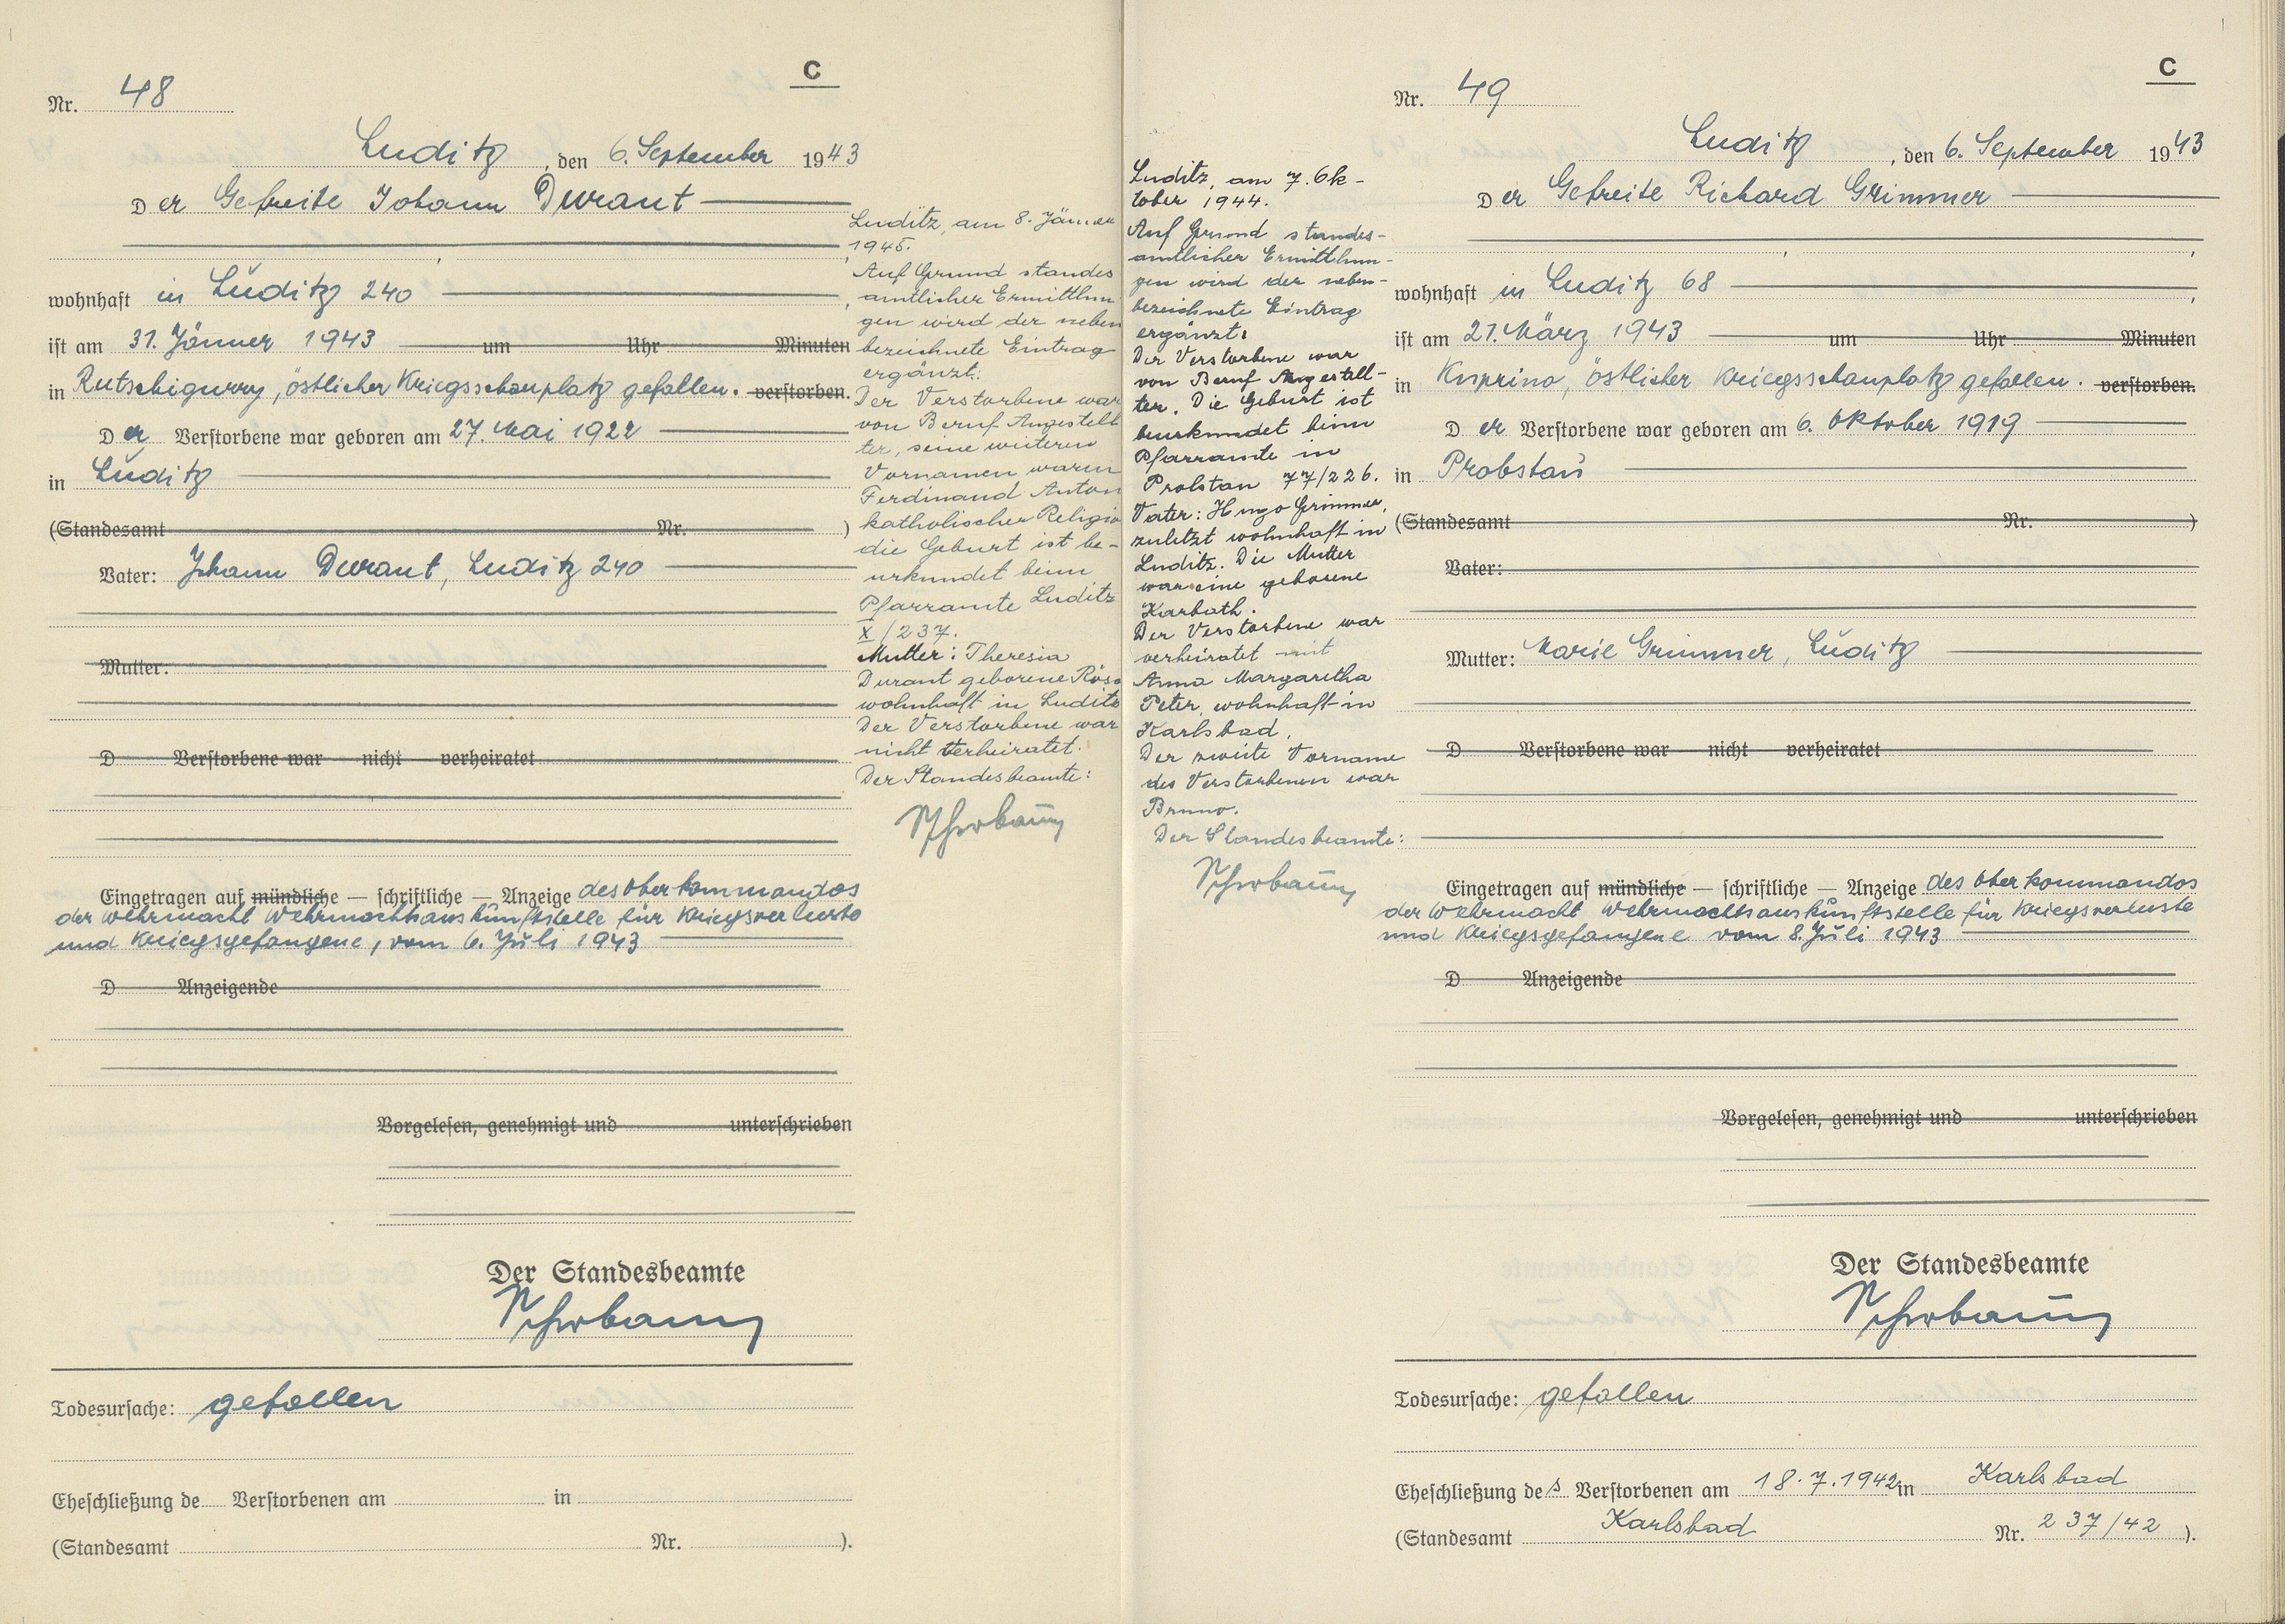 C
Nr. 48
Luditz, den 6. September 1943
Der Gefreite Johann Durant
wohnhaft in Luditz 240
ist am 31. Jänner 1943 um Uhr Minuten
in Rutschigurry, östlicher Kriegsschauplatz gefallen. verstorben.
Der Verstorbene war geboren am 27. Mai 1922
in Luditz
(Standesamt Nr. )
Vater: Johann Durant, Luditz 240
Mutter:
D Verstorbene war nicht verheiratet
Eingetragen auf mündliche — schriftliche — Anzeige des Oberkommandos
der Wehrmacht Wehrmachtsauskunftstelle für Kriegsverluste
und Kriegsgefangene, vom 6. Juli 1943
D Anzeigende
Vorgelesen, genehmigt und unterschrieben
Der Standesbeamte
Todesursache: gefallen
Eheschließung de Verstorbenen am in
(Standesamt Nr. ).
Luditz, am 8. Jänner
1945.
Auf Grund standes
amtlicher Ermittlun
gen wird der neben
bezeichnete Eintrag
ergänzt:
Der Verstorbene war
von Beruf Angestell
ter, seine weiteren
Vornamen waren
Ferdinand Anton
katholischer Religio
die Geburt ist be-
urkundet beim
Pfarramte Luditz
X/237.
Mutter: Theresia
Durant geborene
wohnhaft in Luditz
Der Verstorbene war
nicht verheiratet.
Der Standesbeamte:
Luditz, am 7. Ok-
tober 1944.
Auf Grund standes-
amtlicher Ermittlun-
gen wird der neben-
bezeichnete Eintrag
ergänzt:
Der Verstorbene war
von Beruf Angestell-
ter. Die Geburt ist
beurkundet beim
Pfarramte in
Probstau 77/226.
Vater: Hugo Grimmer,
zuletzt wohnhaft in
Luditz. Die Mutter
war eine geborene
Karbath.
Der Verstorbene war
verheiratet mit
Anna Margaretha
Peter, wohnhaft in
Karlsbad.
Der zweite Vorname
des Verstorbenen war
Bruno.
Der Standesbeamte:
C
Nr. 49
Luditz, den 6. September 1943
Der Gefreite Richard Grimmer
wohnhaft in Luditz 68
ist am 21. März 1943 um Uhr Minuten
in Kuprino, östlicher Kriegsschauplatz gefallen. verstorben.
Der Verstorbene war geboren am 6. Oktober 1919
in Probstau
(Standesamt Nr. )
Vater:
Mutter: Marie Grimmer, Luditz
D Verstorbene war nicht verheiratet
Eingetragen auf mündliche — schriftliche — Anzeige des Oberkommandos
der Wehrmacht Wehrmachtsauskunftstelle für Kriegsverluste
und Kriegsgefangene vom 8. Juli 1943
D Anzeigende
Vorgelesen, genehmigt und unterschrieben
Der Standesbeamte
Todesursache: gefallen
Eheschließung des Verstorbenen am 18.7.1942 in Karlsbad
(Standesamt Karlsbad Nr. 237/42 ).